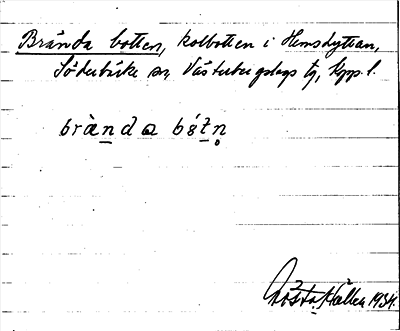 Brända botten, kolbotten i Hemshyttan,
Söderbärke sn, Västerbergslags tg, Kpps l.
brànda bót̠n̥
Gösta Källen 1934.